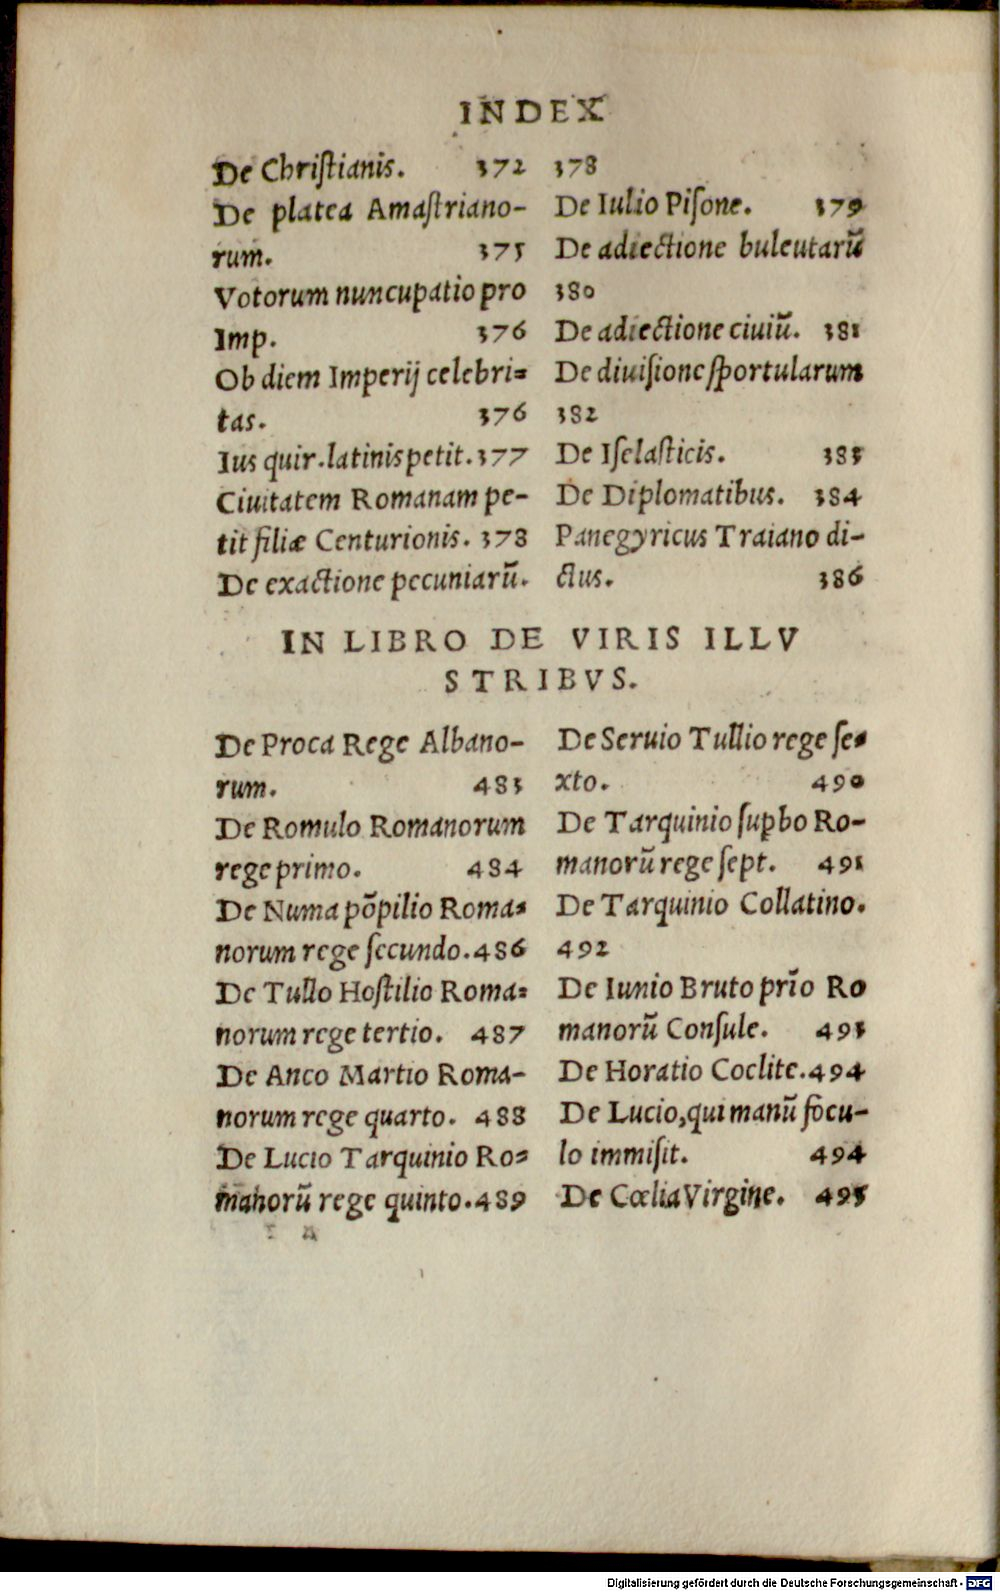 INDEX
De Chriſtianis. 372
De platea Amaſtriano-
rum. 375
Votorum nuncupatio pro
Imp. 376
Ob diem Imperij celebri=
tas. 376
Ius quir. latinis petit. 377
Ciuitatem Romanam pe-
tit filiæ Centurionis. 378
De exactione pecuniarū.
378
De Iulio Piſone. 379
De adiectione buleutarū
380
De adiectione ciuiū. 381
De diuiſione ſportularum
382
De Iſelaſticis. 383
De Diplomatibus. 384
Panegyricus Traiano di-
ctus. 386
IN LIBRO DE VIRIS ILLV
STRIBVS.
De Proca Rege Albano-
rum. 483
De Romulo Romanorum
rege primo. 484
De Numa põpilio Roma=
norum rege ſecundo. 486
De Tullo Hoſtilio Roma=
norum rege tertio. 487
De Anco Martio Roma-
norum rege quarto. 488
De Lucio Tarquinio Ro=
manorū rege quinto. 489
De Seruio Tullio rege ſe=
xto. 490
De Tarquinio ſuꝑbo Ro-
manorū rege ſept. 491
De Tarquinio Collatino.
492
De Iunio Bruto prīo Ro
manorū Conſule. 493
De Horatio Coclite. 494
De Lucio, qui manū focu-
lo immiſit. 494
De Cœlia Virgine. 495
Digitalisierung gefördert durch die Deutsche Forschungsgemeinschaft - DFG